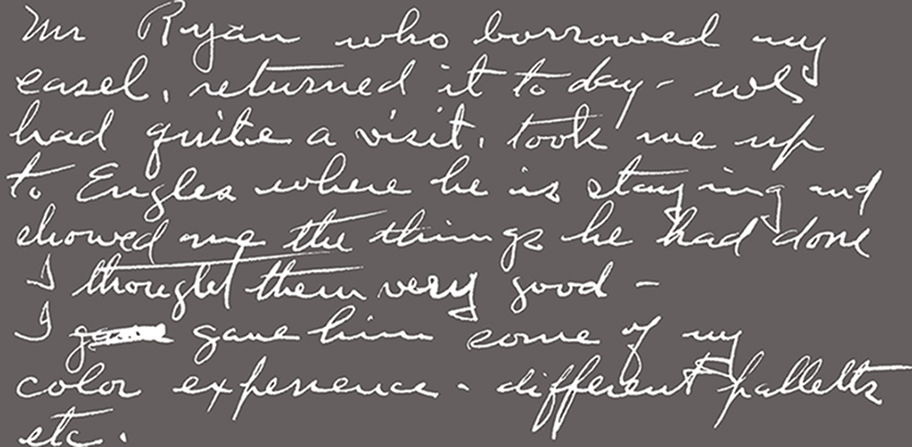 Mr Ryan who borrowed my
easel, returned it to day - we
had quite a visit, took me up
to Engles where he is staying and
showed me the things he had done
I thought them very good -
I gave him some of my
color experience - different palletts
etc.